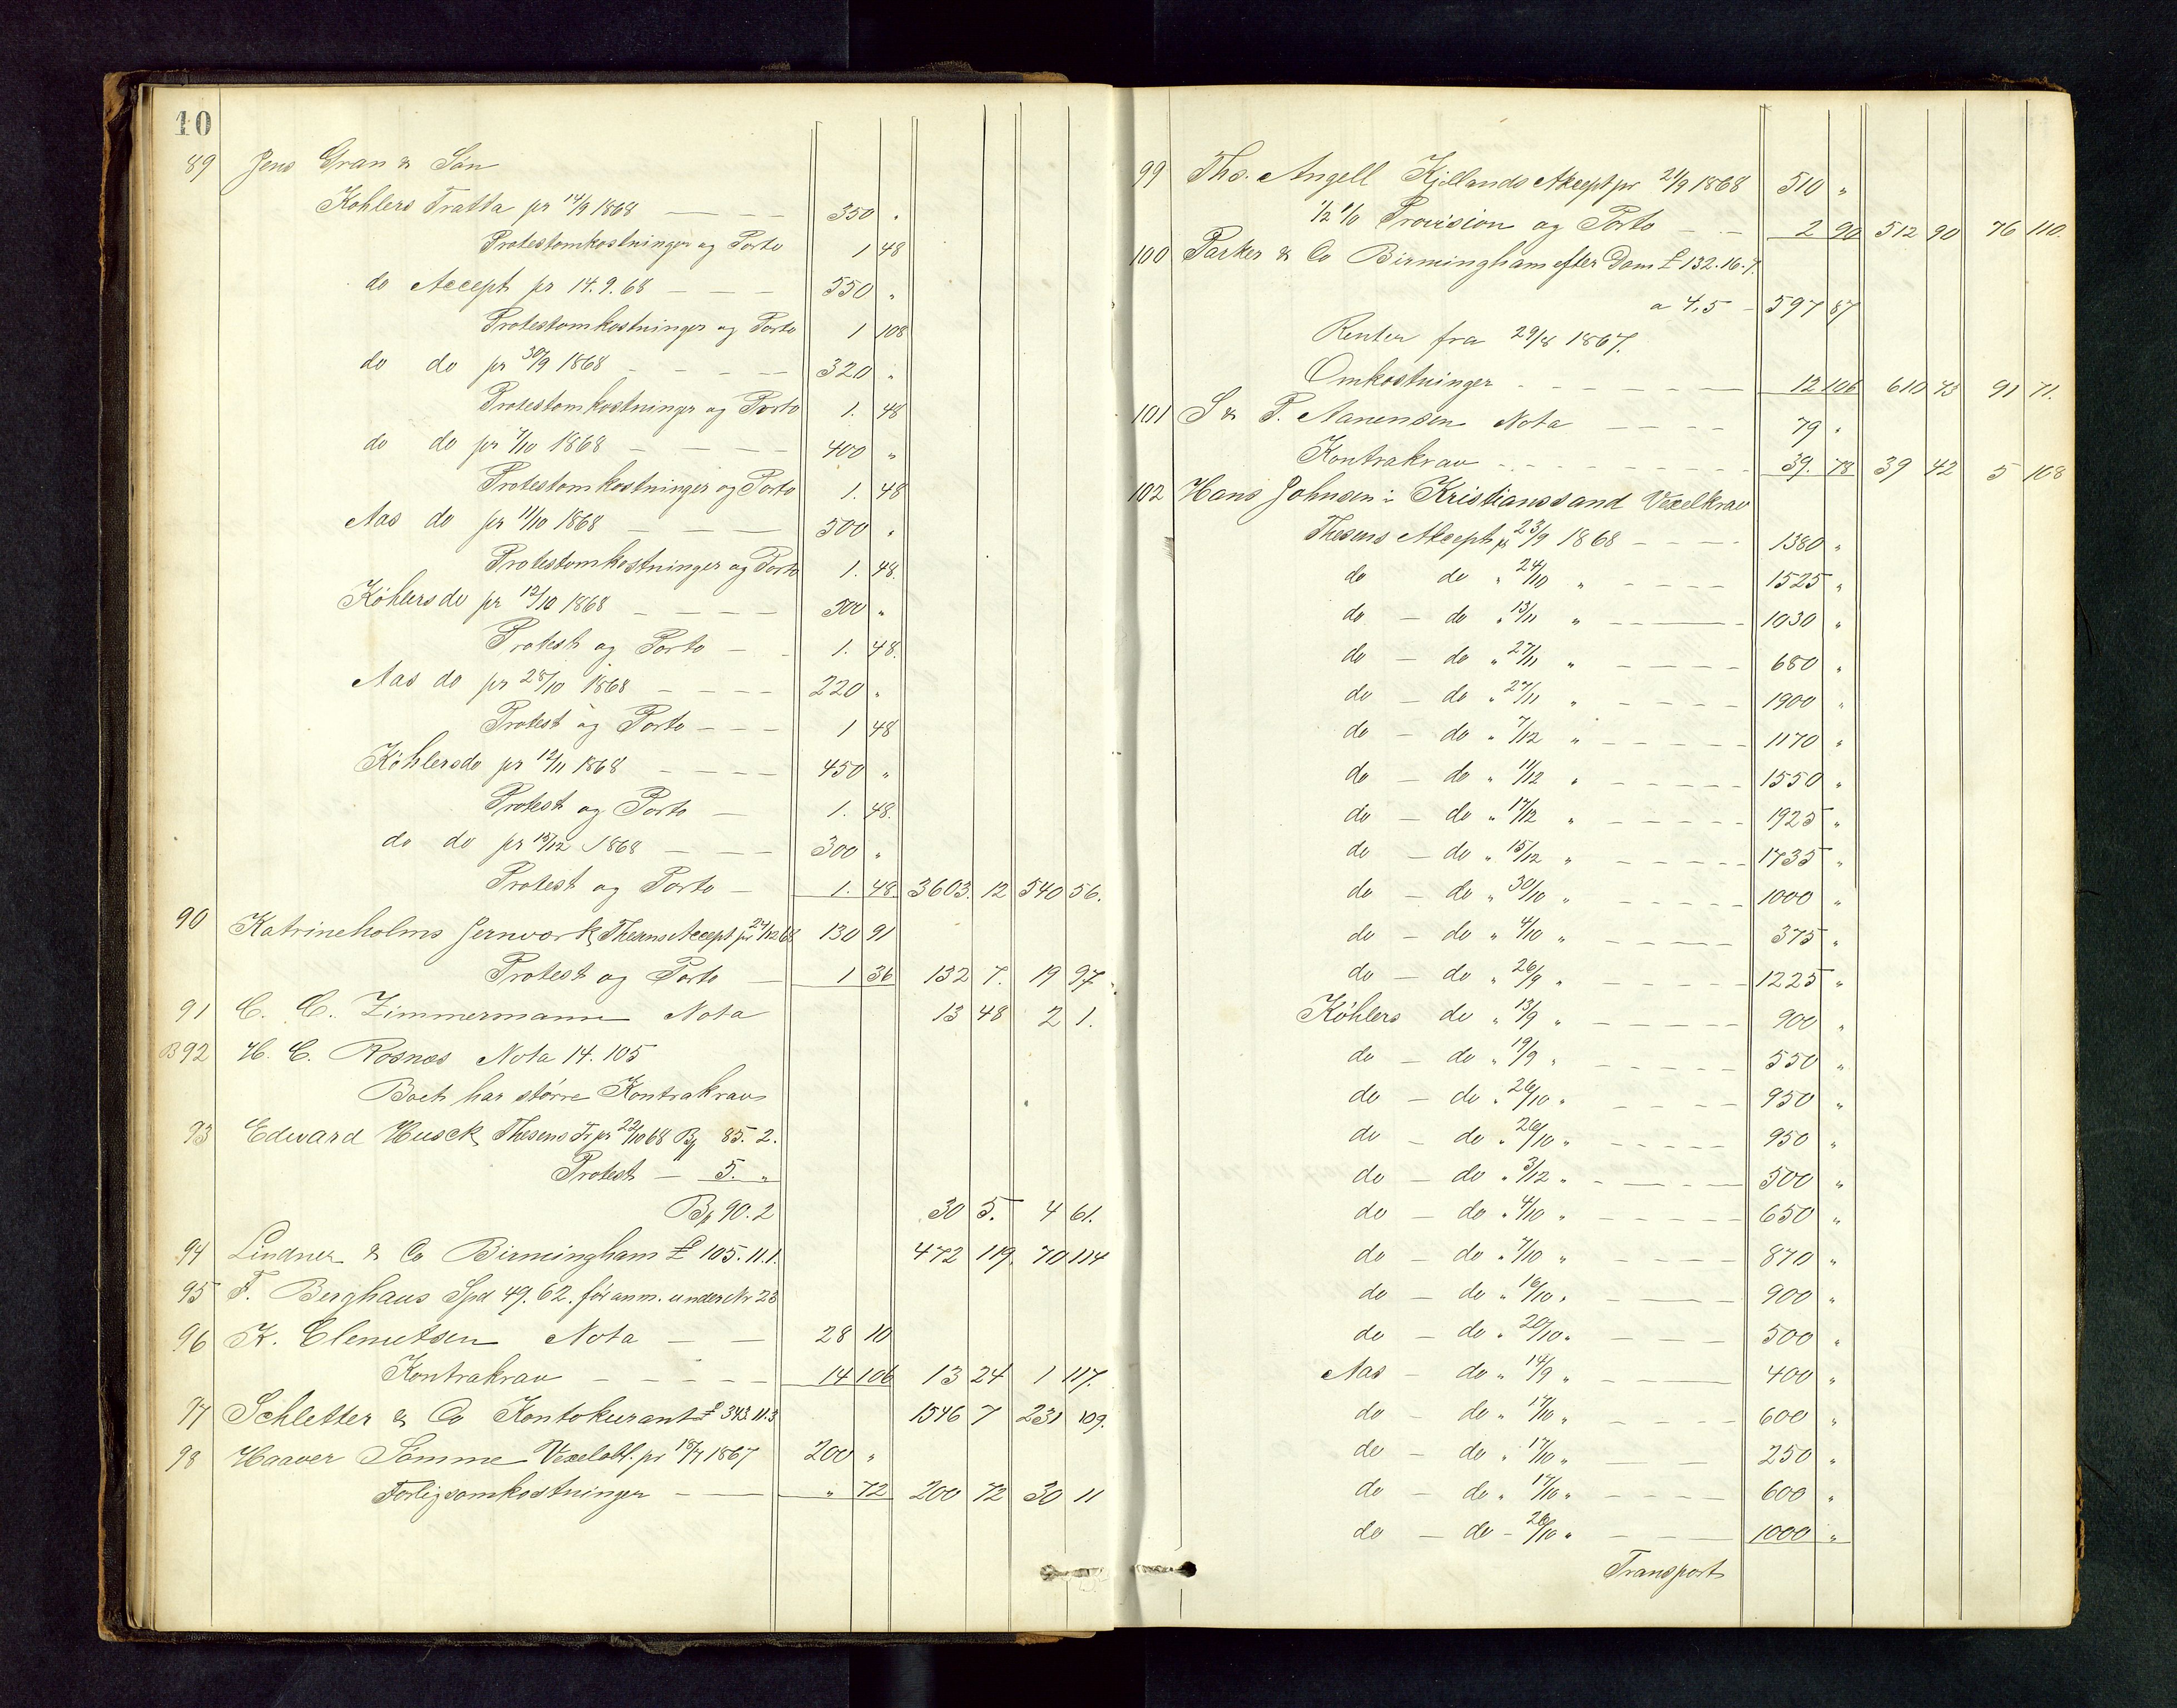 10
89 Jens Gran & Søn
Kohlers Tratta pr 14/9 1868 — — — 350 "
Protestomkostninger og Porto 1 48
do Accept pr 14.9.68 — — — 550 "
Protestomkostninger og Porto 1 108
do do pr 30/9 1868 — — — 320 "
Protestomkostninger og Porto 1. 48
do do pr 7/10 1868 — — — 400 "
Protestomkostninger og Porto 1. 48
Aas do pr 11/10 1868 — — — 500 "
Protestomkostninger og Porto 1. 48.
Köhlers do pr 12/10 1868 — — — 500 "
Protest og Porto — 1. 48.
Aas do pr 28/10 1868 — — — 220 "
Protest og Porto — — 1 48
Köhlers do pr 12/11 1868 — — — 450 "
Protest og Porto — 1. 48.
do do pr 15/12 1868 — — — 300 "
Protest og Porto — 1. 48. 3603. 12 540 56.
90 Katrineholms Jernvark Thesens Accept pr 24/12 68 130 91
Protest og Porto — 1 36 132 7. 19 97
91 C. C. Zimmermann Nota 13 48 2 1.
B 92 H. C. Rosnæs Nota 14.105
Boet har större Kontrakrav
93 Edward Husck Thesens Tr pr 22/10 68 Bf 85. 2.
Protest — 5. "
Bf 90.2 30 5. 4 61.
94 Lindner & Co Birmingham £ 105.11.1. 472 119. 70 114
95 F. Berghaus Spd 49.62. før anm. under Nr 23
96 K. Clemetsen Nota — — 28 10
Kontrakrav — — — 14 106 13 24 1 117.
97 Schletter & Co Kontokurant £ 343.11.3 1546 7 231 109.
98 Haaver Sömme Vexelobl. pr 18/7 1867 200 "
Forligsomkostninger — — " 72 200 72 30 11
99 Tho. Angell Kjellands Akcept pr 21/9 1868 510 "
1/2 % Provision og Porto — — 2 90 512 90 76 110.
100 Parker & Co Birmingham efter Dom £ 132.16.7.
a 4,5 — 597 87
Renter fra 29/8 1867.
Omkostninger — — — 12 106 610 73 91 71.
101 S & P. Aanensen Nota — — — 79 "
Kontrakrav — — — 39. 78 39 42 5 108
102 Hans Johnsen i Kristianssand Vexelkrav
Thesens Akcept pr 23/9 1868 — — — 1380 "
do do " 24/10 " — — — 1525 "
do — do " 13/11 " — — — 1030 "
do — do " 27/11 " — — — 680 "
do — do " 27/11 " — — — 1900 "
do — do " 7/12 " — — — 1170 "
do — do " 11/12 " — — — 1550 "
do — do " 17/12 " — — — 1925 "
do — do " 15/12 " — — — 1735 "
do — do " 30/10 " — — — 1000 "
do — do " 4/10 " — — — 375 "
do — do " 26/9 " — — — 1225 "
Köhlers do " 13/9 " — — — 900 "
do — do " 19/9 " — — — 550 "
do — do " 26/10 " — — — 950 "
do — do " 26/10 " — — — 950 "
do — do " 3/12 " — — — 500 "
do — do " 4/10 " — — — 650 "
do — do " 7/10 " — — — 870 "
do — do " 16/10 " — — — 900 "
do — do " 20/10 " — — — 500 "
Aas — do " 14/9 " — — — 400 "
do — do " 17/10 " — — — 600 "
do — do " 17/10 " — — — 250 "
do — do " 17/10 " — — — 600 "
do — do — 26/10 " — — — 1000 "
Transport